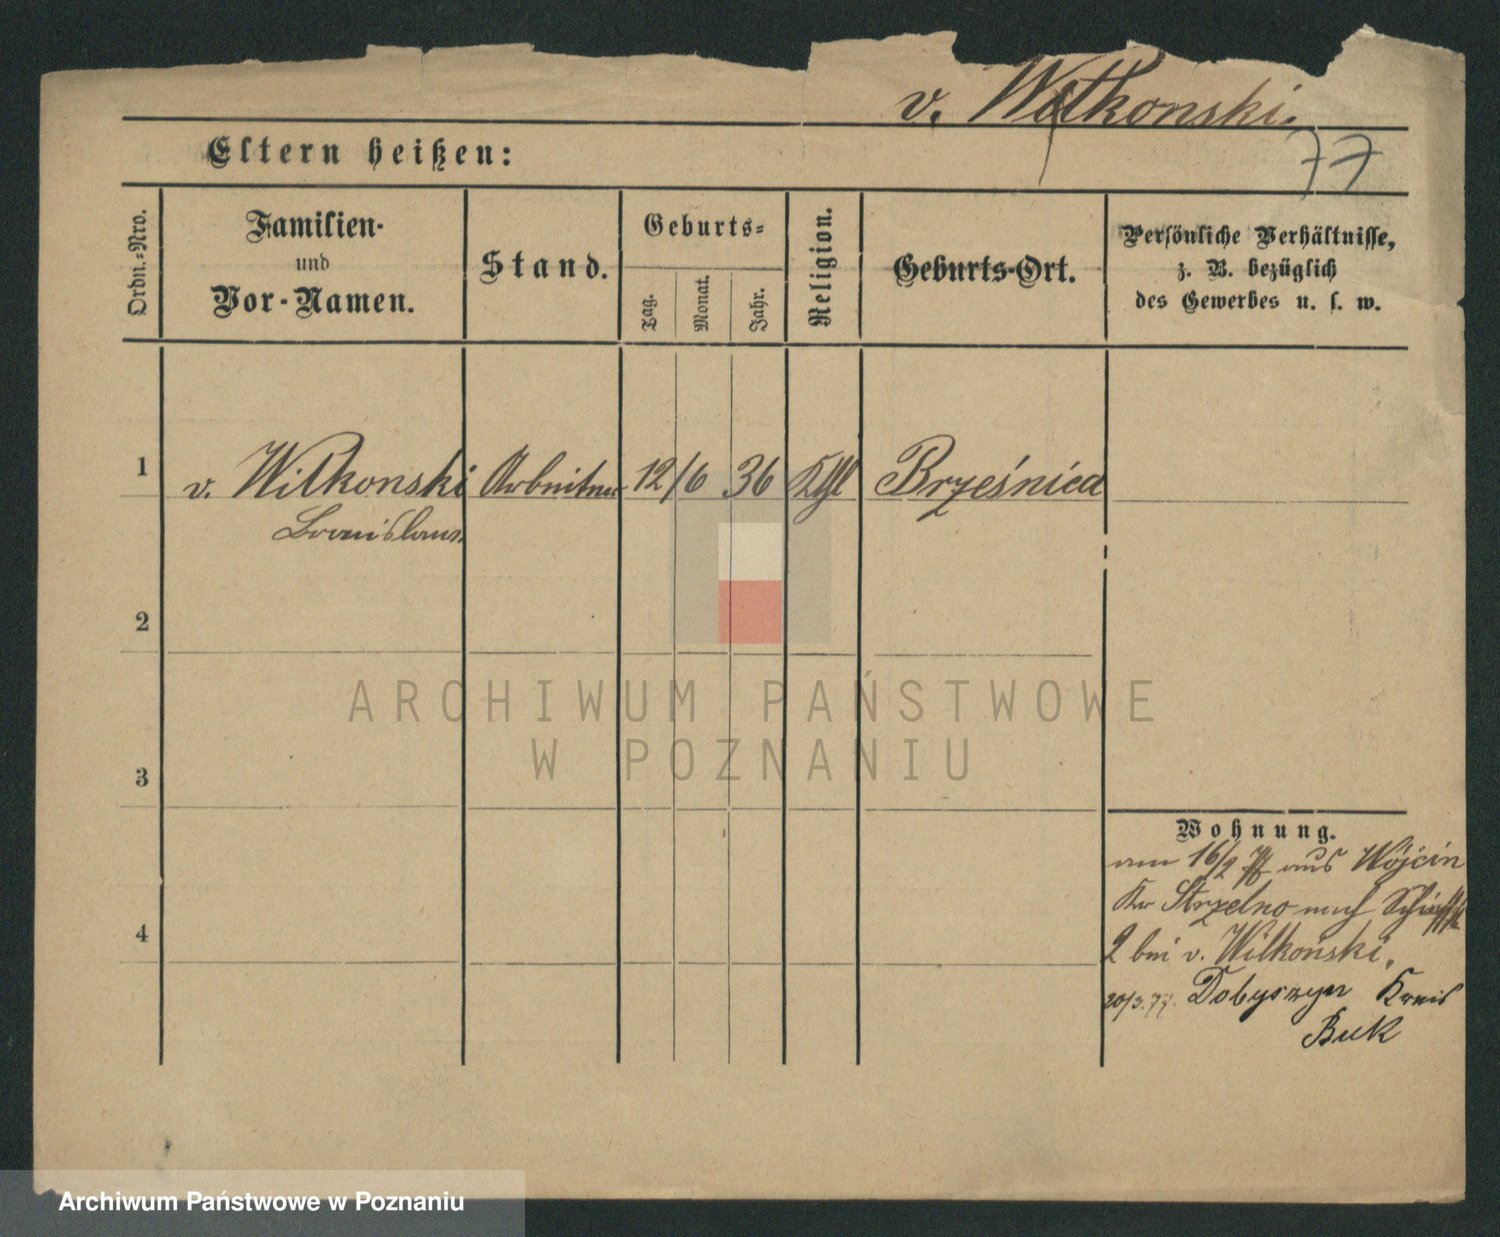 v. Wilkonski.
77
Eltern heißen:
Ordn.-Nro.
Familien-
und
Vor-Namen.
Stand.
Geburts-
Tag.
Monat.
Jahr.
Religion.
Geburts-Ort.
Persönliche Verhältnisse,
z. B. bezüglich
des Gewerbes u. s. w.
1 v. Wilkonski Arbeiter 12/6 36 Kth Brześnica
Bronislaus
2
ARCHIWUM PAŃSTWOWE
W POZNANIU
3
Wohnung.
am 16/2 77 aus Wójcin
Kr Strzelno nach
4
2 bei v. Wilkoński.
20/3.77. Dobyszyn Kreis
Buk
Archiwum Państwowe w Poznaniu